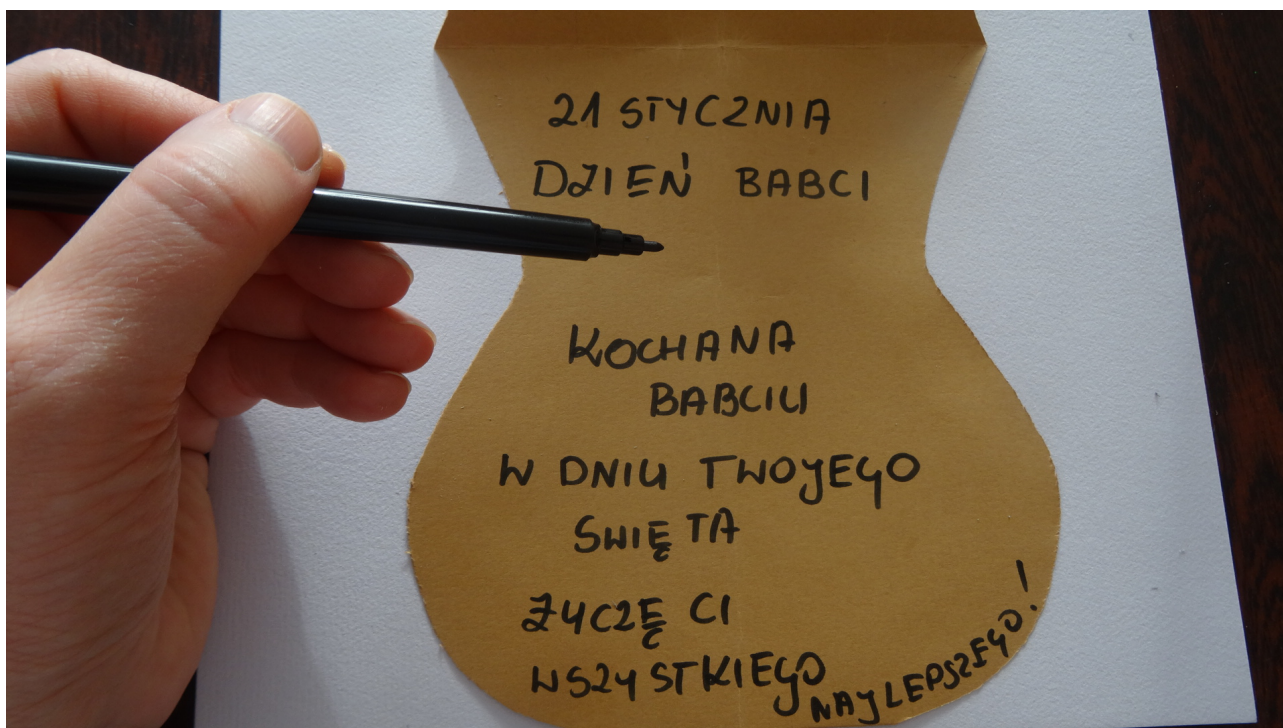 21 STYCZNIA
DZIEŃ BABCI
KOCHANA
BABCIU
W DNIU TWOJEGO
SWIĘTA
ZYCZĘ CI
WSZYSTKIEGO
NAJLEPSZEGO!